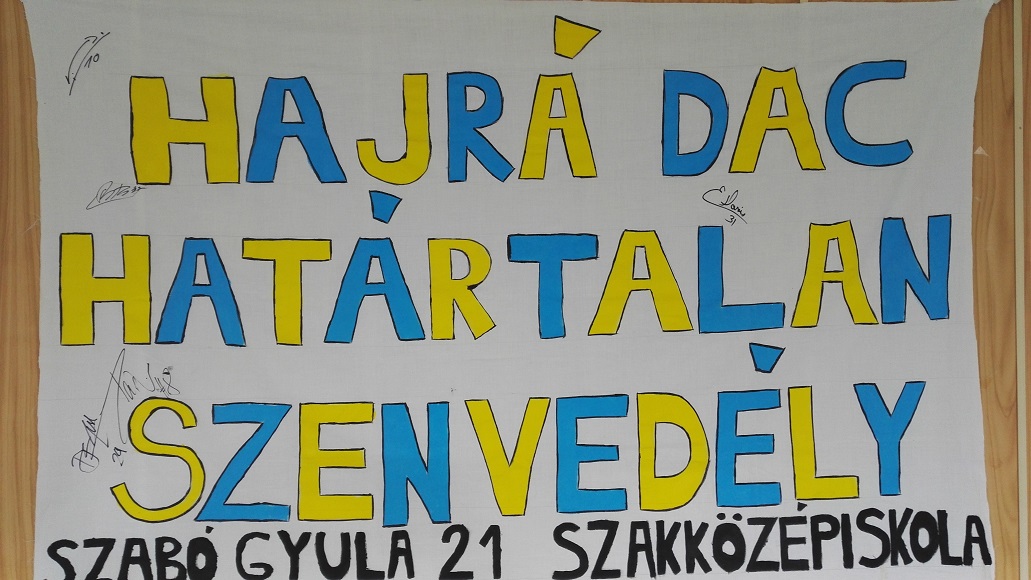 10
HAJRÁ DAC
31
HATÁRTALAN
SZENVEDÉLY
29
SZABÓ GYULA 21 SZAKKÖZÉPISKOLA